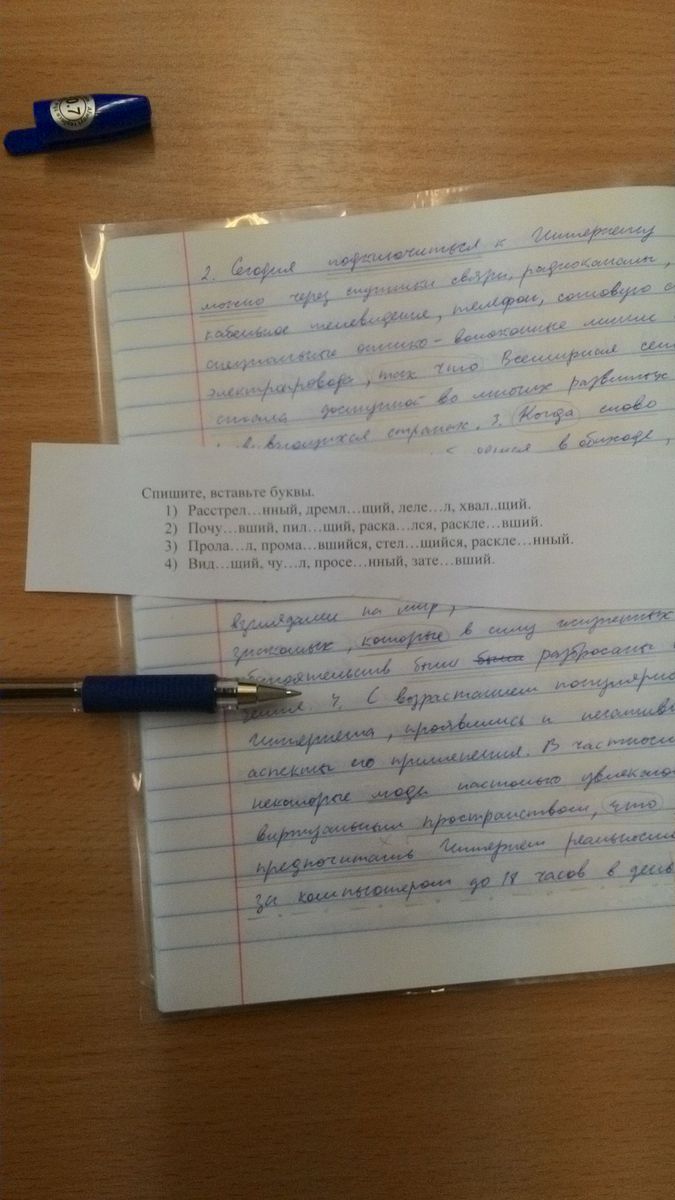 0.7
2. Сегодня подключиться к Интернету
можно через спутники связи, радиоканалы,
кабельное телевидение, телефон, сотовую
специальные оптико-волоконные линии
электропровода, так что Всемирная
стала доступной во многих развитых
странах. 3. Когда слово
в обиходе,
Спишите, вставьте буквы.
1) Расстрел…нный, дремл…щий, леле…л, хвал..щий.
2) Почу…вший, пил…щий, раска…лся, раскле…вший.
3) Прола…л, прома…вшийся, стел…щийся, раскле…нный.
4) Вид…щий, чу…л, просе…нный, зате…вший.
взглядами на мир,
знакомых, которые в силу жизненных
обстоятельств были были разбросаны
4. С возрастанием
Интернета, проявились и
аспекты его применения. В
некоторые люди настолько
виртуальным пространством, что
предпочитать Интернет
за компьютером до 18 часов в